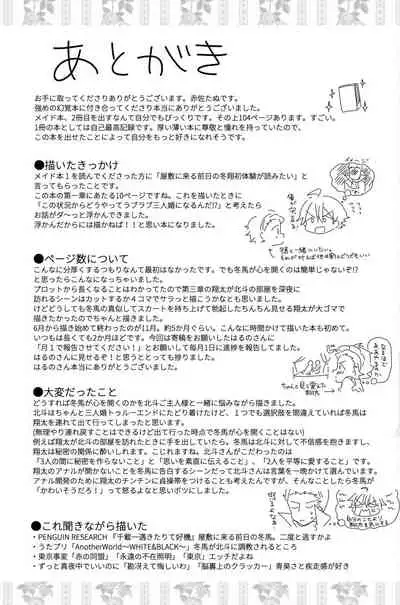 あとがき
お手に取ってくださりありがとうございます。赤佐たぬです。
強めの幻覚本に付き合ってくださり本当にありがとうございました。
メイド本、2冊目を出すなんて自分でもびっくりです。その上104ページあります。すごい。
1冊の本としては自己最高記録です。厚い薄い本に尊敬と憧れを持っていたので、
この本を出せたことによって自分をもっと好きになれそうです。
●描いたきっかけ
メイド本1を読んでくださった方に「屋敷に来る前日の冬翔初体験が読みたい」と
言ってもらったことです。
この本の第一章にあたる10ページですね。これを描いたときに
「この状況からどうやってラブラブ三人婚になるんだ!?」と考えたら
お話がダ〜っと浮かんできました。
浮かんだからには描かねば!!と思い本になりました。
●ページ数について
こんなに分厚くするつもりなんて最初はなかったです。でも冬馬が心を開くのは簡単じゃないぞ!?
と思ったらこんなになっちゃいました。
プロットから長くなることはわかってたので第三章の翔太が北斗の部屋を深夜に
訪れるシーンはカットするか4コマでサラっと描こうかなとも思いました。
けどどうしても冬馬の真似してスカートを持ち上げて勃起したちんちん見せる翔太が大ゴマで
描きたかったのでちゃんと描きました。
6月から描き始めて終わったのが11月。約5か月ぐらい。こんなに時間かけて描いた本も初めて。
いつもは長くても2か月ほどです。今回は寄稿をお願いしたはるのさんに
「月1で報告させてください!」とお願いして毎月1日に進捗を報告してました。
はるのさんに見せるぞ!と思うととっても捗りました。
はるのさん本当にありがとうございます。
●大変だったこと
どうすれば冬馬が心を開くのかを北斗ご主人様と一緒に悩みながら描きました。
北斗はちゃんと三人婚トゥルーエンドにたどり着けたけど、1つでも選択肢を間違えていれば冬馬は
翔太を連れて出て行ってしまったと思います。
(無理やり連れ戻すことはできるけど出て行った時点で冬馬が心を開くことはない)
例えば翔太が北斗の部屋を訪れたときに手を出していたら。冬馬は北斗に対して不信感を抱きますし、
翔太は秘密の関係に酔いしれます。こじれますね。北斗さんがこだわったのは
「3人の間に秘密を作らないこと」と「思いを素直に伝えること」、「2人を平等に愛すること」です。
翔太のアナルが開かないことを冬馬に告白するシーンだって北斗さんは言葉を一晩かけて選んでいます。
アナル開発のために翔太のチンチンに貞操帯をつけることも考えたんですが、そんなことしたら冬馬が
「かわいそうだろ!」って怒るよなと思いボツにしました。
●これ聞きながら描いた
・PENGUIN RESEARCH 「千載一遇きたりて好機」屋敷に来る前日の冬馬。二度と逃すかよ
・うたプリ「AnotherWorld〜WHITE&BLACK〜」冬馬が北斗に調教されるところ
・東京事変「赤の同盟」「永遠の不在証明」「東京」エッチだよね
・ずっと真夜中でいいのに「勘冴えて悔しいわ」「脳裏上のクラッカー」青葵さと疾走感が好き